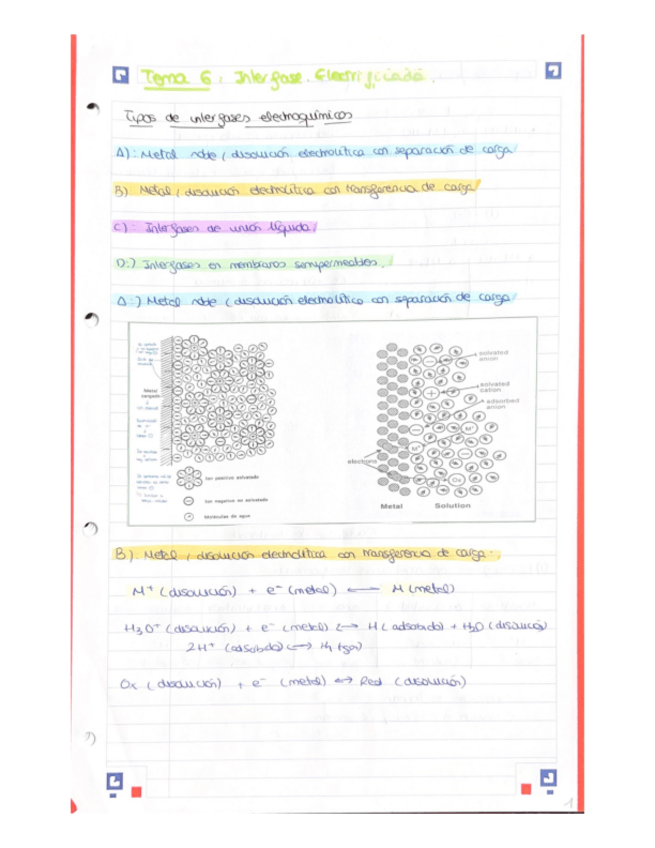 Tema 6: Interfase Electrificada.
Tipos de interfases electroquímicas
A): Metal noble / disolución electrolítica con separación de carga
B) Metal / disolución electrolítica con transferencia de carga
C): Interfases de unión líquida /
D:) Interfases en membranas semipermeables.
A:) Metal noble / disolución electrolítica con separación de carga
Metal
cargado
Ion positivo solvatado
Ion negativo no solvatado
Moléculas de agua
solvated
anion
solvated
cation
adsorbed
anion
M+
M+
Ox
electrons
Metal Solution
B). Metal / disolución electrolítica con transferencia de carga.
M+ (disolución) + e- (metal) ⟵ M (metal)
H3O+ (disolución) + e- (metal) ⟷ H (adsorbido) + H2O (disolución)
2H+ (adsorbido) ⟷ H2 (gas)
Ox (disolución) + e- (metal) ↔ Red (disolución)
1